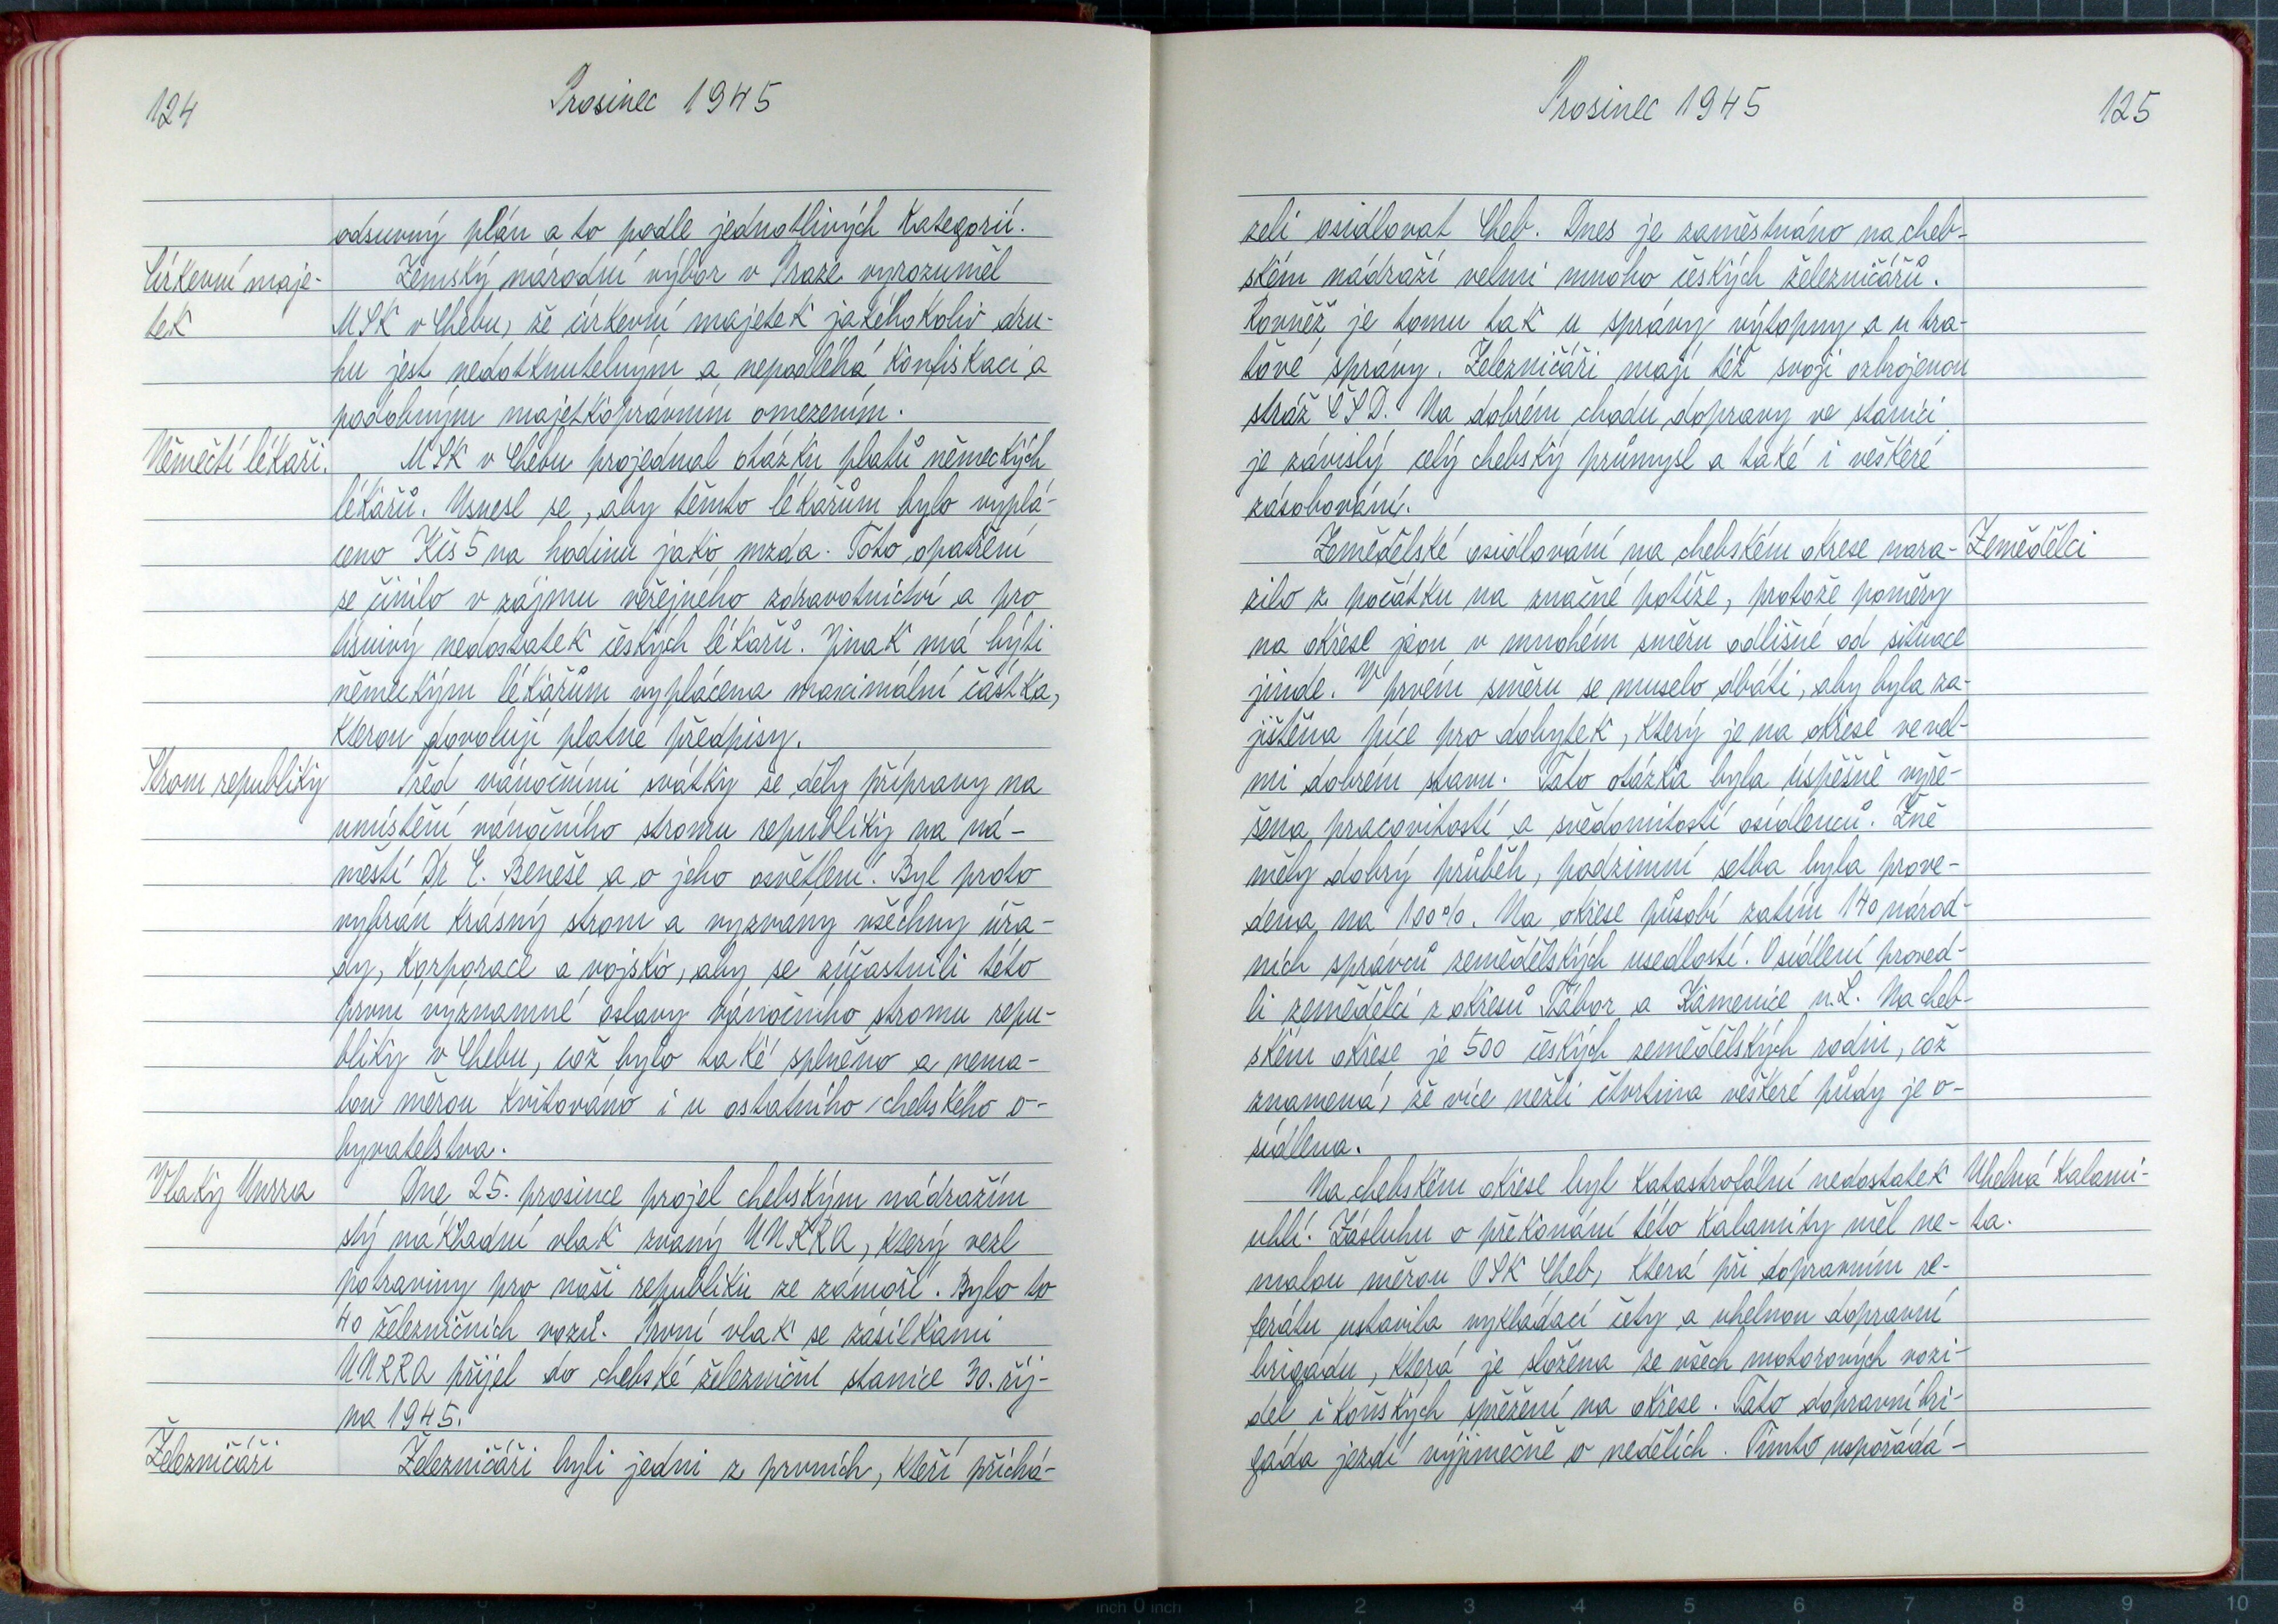 124
Prosinec 1945
odsuvný plán a to podle jednotlivých kategorií.
Církevní maje-
tek
Zemský národní výbor v Praze vyrozuměl
MSK v Chebu, že církevní majetek jakéhokoliv dru-
hu jest nedotknutelným a nepodléhá konfiskaci a
podobným majetkoprávním omezením.
Němečtí lékaři.
MSK v Chebu projednal otázku platů německých
lékařů. Usnesl se, aby těmto lékařům bylo vyplá-
ceno Kčs 5 na hodinu jako mzda. Toto opatření
se činilo v zájmu veřejného zdravotnictví a pro
tísnivý nedostatek českých lékařů. Jinak má býti
německým lékařům vyplácena maximální částka,
kterou dovolují platné předpisy.
Strom republiky
Před vánočními svátky se děly přípravy na
umístění vánočního stromu republiky na ná-
městí Dr E. Beneše a o jeho osvětlení. Byl proto
vybrán krásný strom a vyzvány všechny úřa-
dy, korporace a vojsko, aby se zúčastnili této
první významné oslavy vánočního stromu repu-
bliky v Chebu, což bylo také splněno a nema-
lou měrou kvitováno i u ostatního chebského o-
byvatelstva.
Vlaky Unrra
Dne 25. prosince projel chebským nádražím
stý nákladní vlak zvaný UNRRA, který vezl
potraviny pro naši republiku ze zámoří. Bylo to
40 železničních vozů. První vlak se zásilkami
UNRRA přijel do chebské železniční stanice 30. říj-
na 1945.
Železničáři
Železničáři byli jedni z prvních, kteří přichá-
Prosinec 1945
125
zeli osidlovat Cheb. Dnes je zaměstnáno na cheb-
ském nádraží velmi mnoho českých železničářů.
Rovněž je tomu tak u správy výtopny a u tra-
ťové správy. Železničáři mají též svoji ozbrojenou
stráž ČSD. Na dobrém chodu dopravy ve stanici
je závislý celý chebský průmysl a také i veškeré
zásobování.
Zemědělské osidlování na chebském okrese nara-
Zemědělci
zilo z počátku na značné potíže, protože poměry
na okrese jsou v mnohém směru odlišné od situace
jinde. V prvém směru se muselo dbáti, aby byla za-
jištěna píce pro dobytek, který je na okrese ve vel-
mi dobrém stavu. Tato otázka byla úspěšně vyře-
šena pracovitostí a svědomitostí osídlenců. Žně
měly dobrý průběh, podzimní setba byla prove-
dena na 100%. Na okrese působí zatím 140 národ-
ních správců zemědělských usedlostí. Osídlení proved-
li zemědělci z okresů Tábor a Kamenice n.L. Na cheb-
ském okrese je 500 českých zemědělských rodin, což
znamená, že více nežli čtvrtina veškeré půdy je o-
sídlena.
Na chebském okrese byl katastrofální nedostatek
Uhelná kalami-
uhlí. Zásluhu o překonání této kalamity měl ne-
ta.
malou měrou OSK Cheb, která při dopravním re-
ferátu ustavila vykládací čety a uhelnou dopravní
brigádu, která je složena ze všech motorových vozi-
del i koňských spřežení na okrese. Tato dopravní bri-
gáda jezdí výjimečně o nedělích. Tímto uspořádá-
inch 0 inch
1
2
3
4
5
6
7
8
9
10